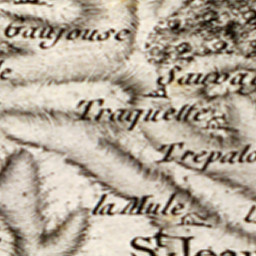 Gaujouse
Sauva
Traquette
Trepalo
la Mule
St Jea